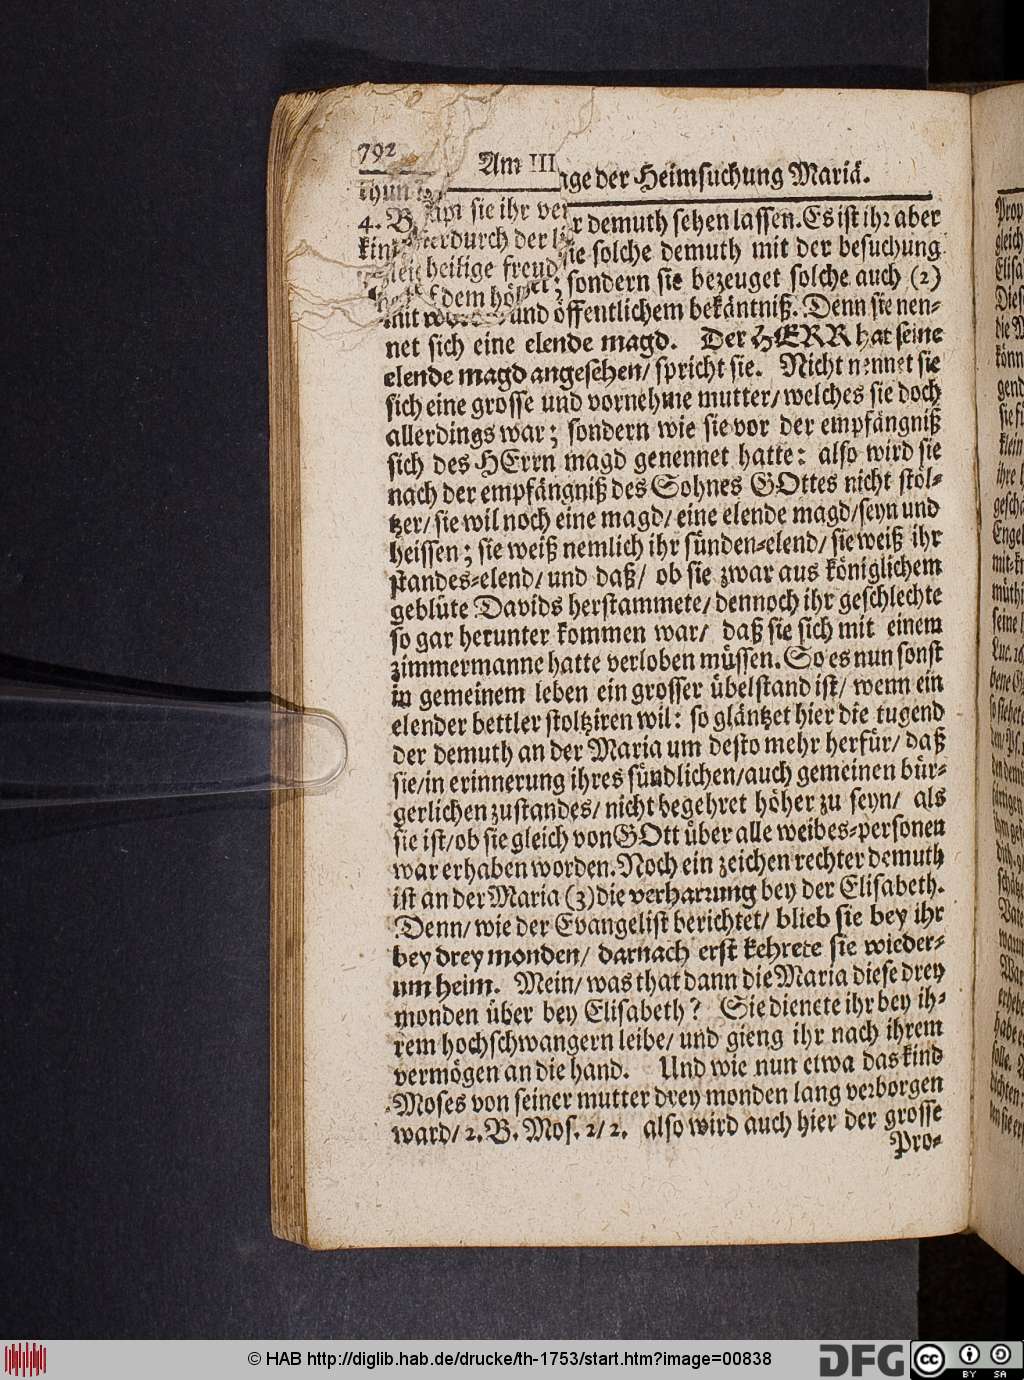 792
Am III
age der Heimsuchung Mariä.
thun
sie ihr ver
4. B
r demuth sehen lassen. Es ist ihr aber
durch der
sie solche demuth mit der besuchung
heilige freud
sondern sie bezeuget solche auch (2)
dem
mit und öffentlichem bekäntniß. Denn sie nen-
net sich eine elende magd. Der HERR hat seine
elende magd angesehen/ spricht sie. Nicht nennet sie
sich eine grosse und vornehme mutter/ welches sie doch
allerdings war; sondern wie sie vor der empfängniß
sich des HErrn magd genennet hatte: also wird sie
nach der empfängniß des Sohnes GOttes nicht stöl-
tzer/ sie wil noch eine magd/ eine elende magd/ seyn und
heissen; sie weiß nemlich ihr sünden-elend/ sie weiß ihr
standes-elend/ und daß/ ob sie zwar aus königlichem
geblüte Davids herstammete/ dennoch ihr geschlechte
so gar herunter kommen war/ daß sie sich mit einem
zimmermanne hatte verloben müssen. So es nun sonst
in gemeinem leben ein grosser übelstand ist/ wenn ein
elender bettler stoltziren wil: so gläntzet hier die tugend
der demuth an der Maria um desto mehr herfür/ daß
sie/ in erinnerung ihres sündlichen/ auch gemeinen bür-
gerlichen zustandes/ nicht begehret höher zu seyn/ als
sie ist/ ob sie gleich von GOtt über alle weibes-personen
war erhaben worden. Noch ein zeichen rechter demuth
ist an der Maria (3) die verharrung bey der Elisabeth.
Denn/ wie der Evangelist berichtet/ blieb sie bey ihr
bey drey monden/ darnach erst kehrete sie wieder-
um heim. Mein/ was that dann die Maria diese drey
monden über bey Elisabeth? Sie dienete ihr bey ih-
rem hochschwangern leibe/ und gieng ihr nach ihrem
vermögen an die hand. Und wie nun etwa das kind
Moses von seiner mutter drey monden lang verborgen
ward/ 2. B. Mos. 2/ 2. also wird auch hier der grosse
Pro-
© HAB http://diglib.hab.de/drucke/th-1753/start.htm?image=00838
DFG
cc
BY SA